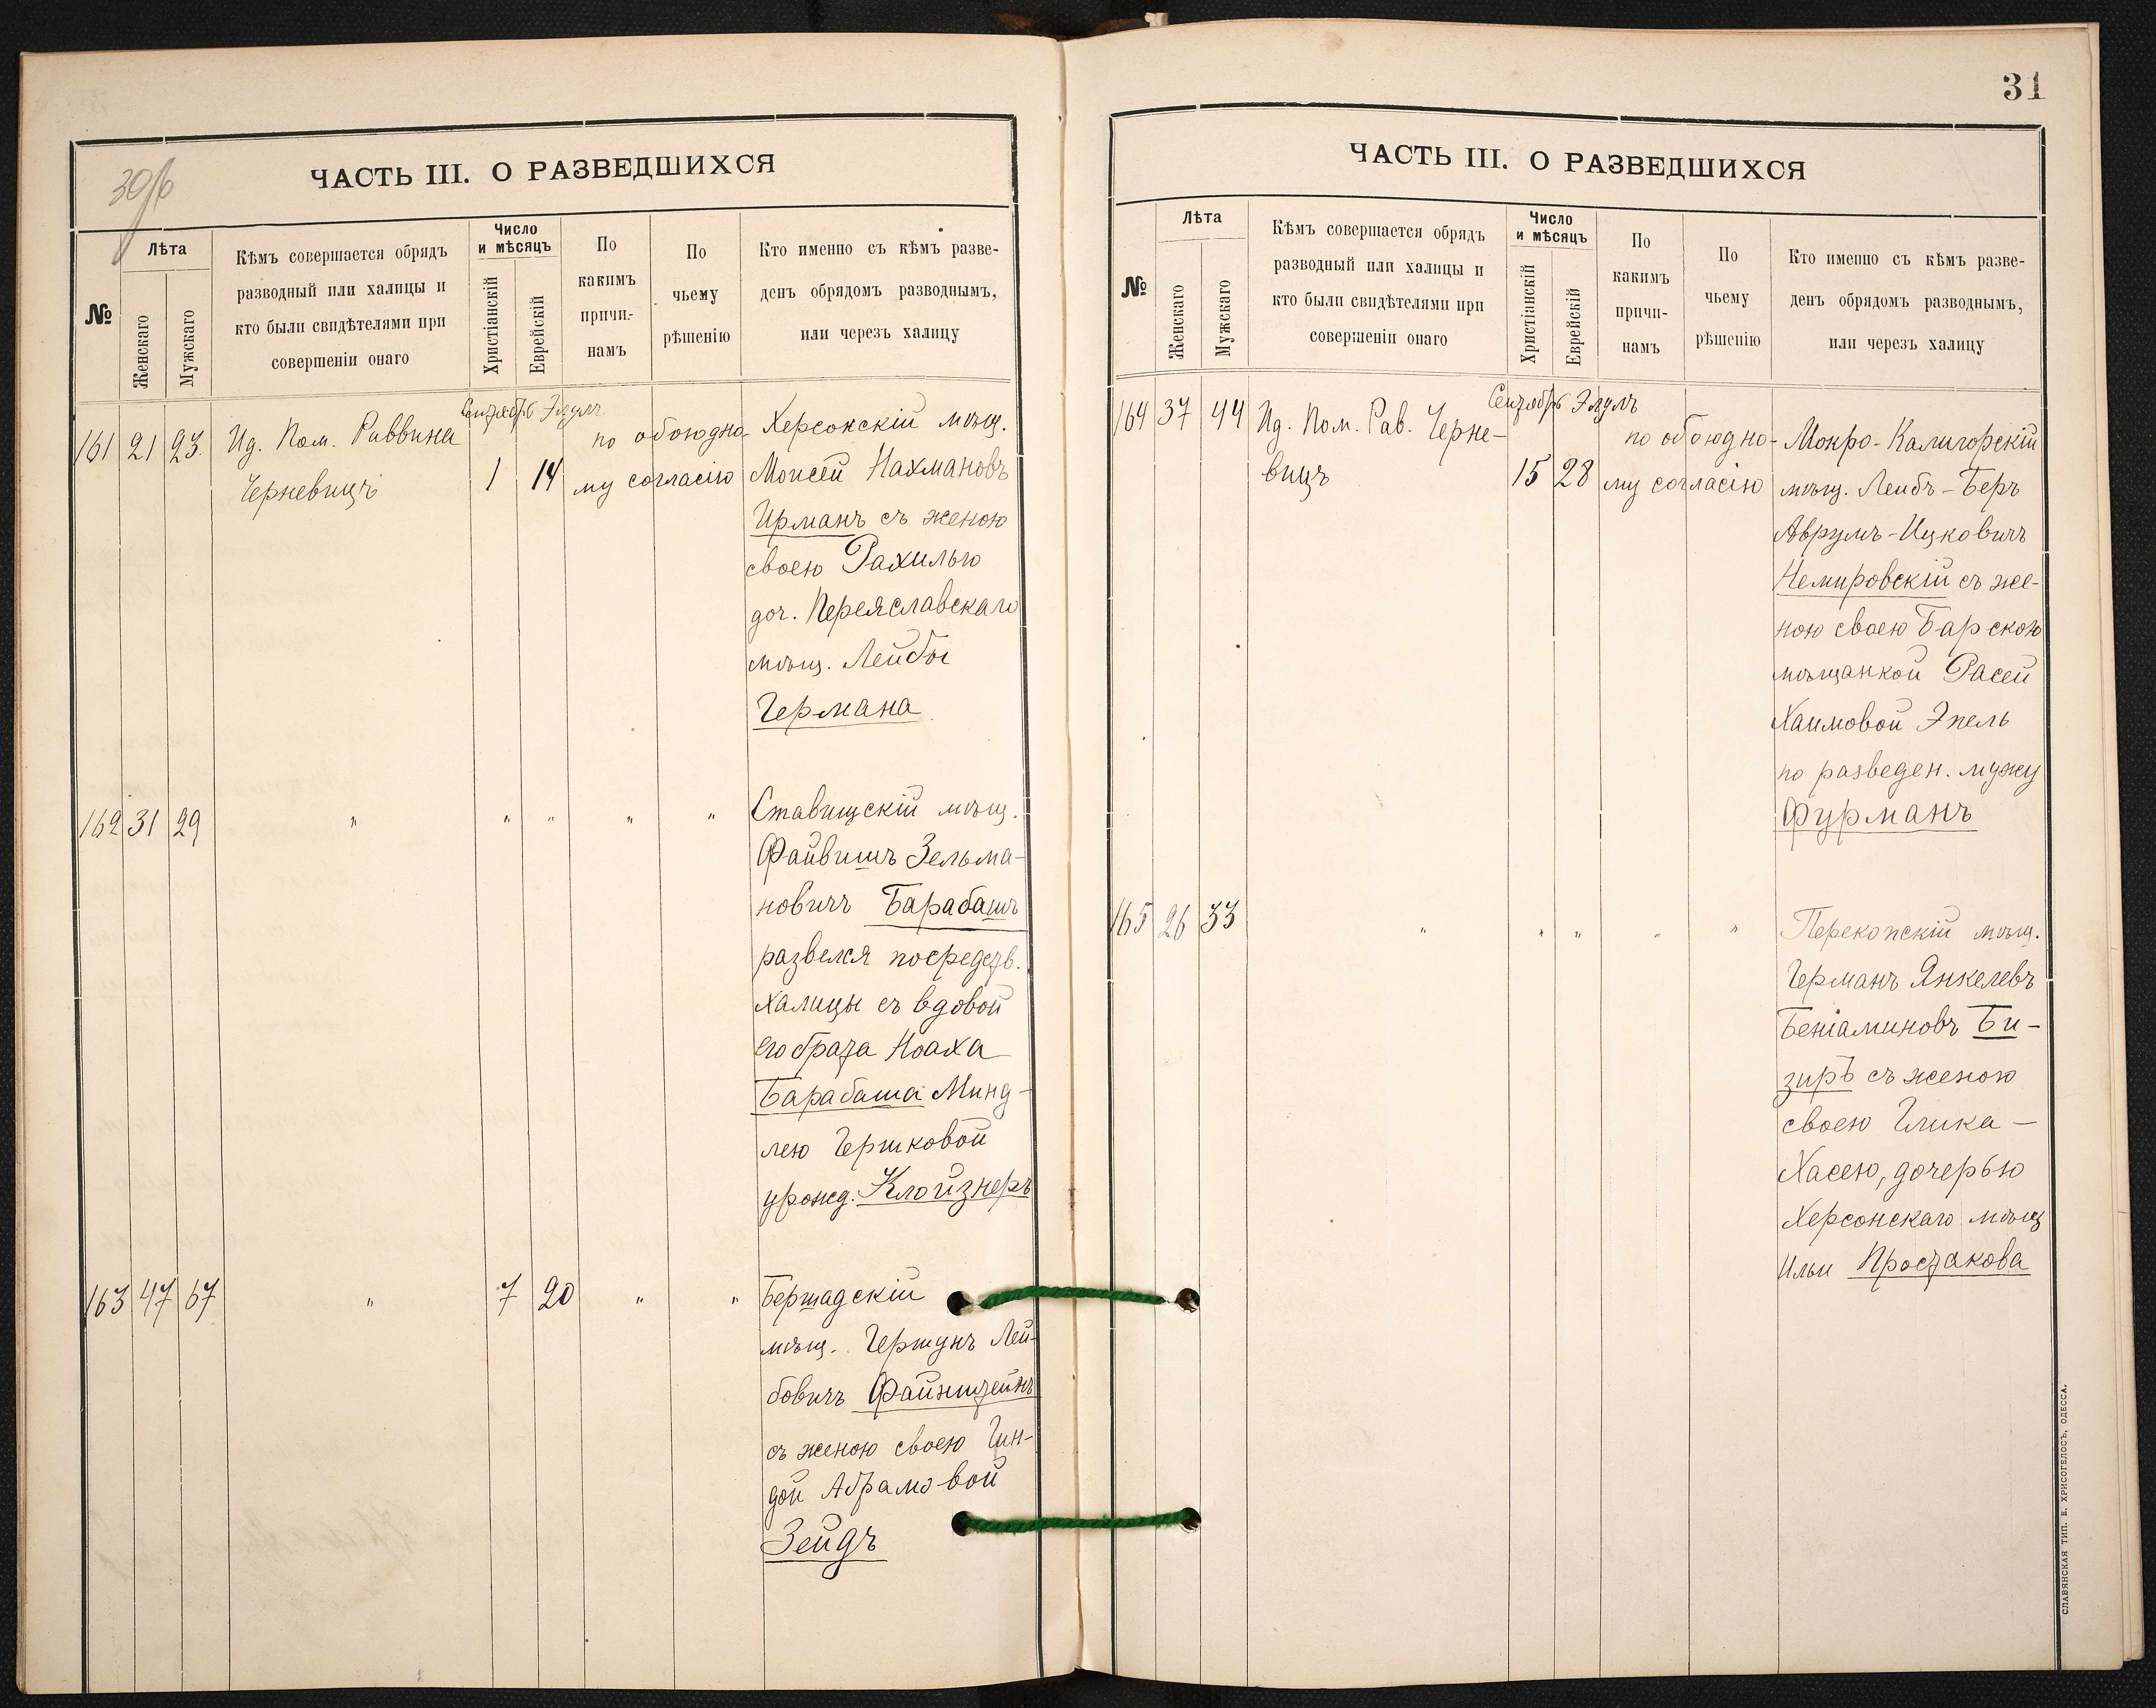 30об
ЧАСТЬ III. О РАЗВЕДШИХСЯ
№
Лѣта
Женскаго
Мужскаго
Кѣмъ совершается обрядъ
разводный или халицы и
кто были свидѣтелями при
совершеніи онаго
Число
и мѣсяцъ
Христіанскій
Еврейскій
По
какимъ
причи-
намъ
По
чьему
рѣшенію
Кто именно съ кѣмъ разве-
денъ обрядомъ разводнымъ,
или черезъ халицу
Сентябрь Элулъ
161 21 23. Ид. Пом. Раввина
Черневицъ
1 14
по обоюдно-
му согласію
Херсонскій мѣщ.
Моисей Нахмановъ
Ирманъ съ женою
своею Рахилью
доч. Переяславскаго
мѣщ. Лейбы
Германа
162 31 29 " " " " "
Ставищскій мѣщ.
Файвишъ Зельма-
новичъ Барабашъ
развелся посредств.
халицы съ вдовой
его брата Ноаха
Барабаша Минд-
лею Гершковой
урожд. Клойзнеръ
163 47 67 " 7 20 " "
Бершадскій
мѣщ. Гершунъ Лей-
бовичъ Файнштейнъ
съ женою своею Гин-
дой Абрамовой
Зейдъ
31
ЧАСТЬ III. О РАЗВЕДШИХСЯ
№
Лѣта
Женскаго
Мужскаго
Кѣмъ совершается обрядъ
разводный или халицы и
кто были свидѣтелями при
совершеніи онаго
Число
и мѣсяцъ
Христіанскій
Еврейскій
По
какимъ
причи-
намъ
По
чьему
рѣшенію
Кто именно съ кѣмъ разве-
денъ обрядомъ разводнымъ,
или черезъ халицу
Сентябрь Элулъ
164 37 44 Ид. Пом. Рав. Черне-
вицъ
15 28
по обоюдно-
му согласію
Мокро-Калигорскій
мѣщ. Лейбъ-Беръ
Аврумъ-Ицковичъ
Немировскій съ же-
ною своею Барскою
мѣщанкой Расей
Хаимовой Эпель
по разведен. мужу
Фурманъ
165 26 33 " " " " "
Перекопскій мѣщ.
Германъ Янкелевъ
Беніаминовъ Би-
зиръ съ женою
своею Глика-
Хасею, дочерью
Херсонскаго мѣщ
Ильи Простакова
СЛАВЯНСКАЯ ТИП. Е. ХРИСОГЕЛОСЪ, ОДЕССА.